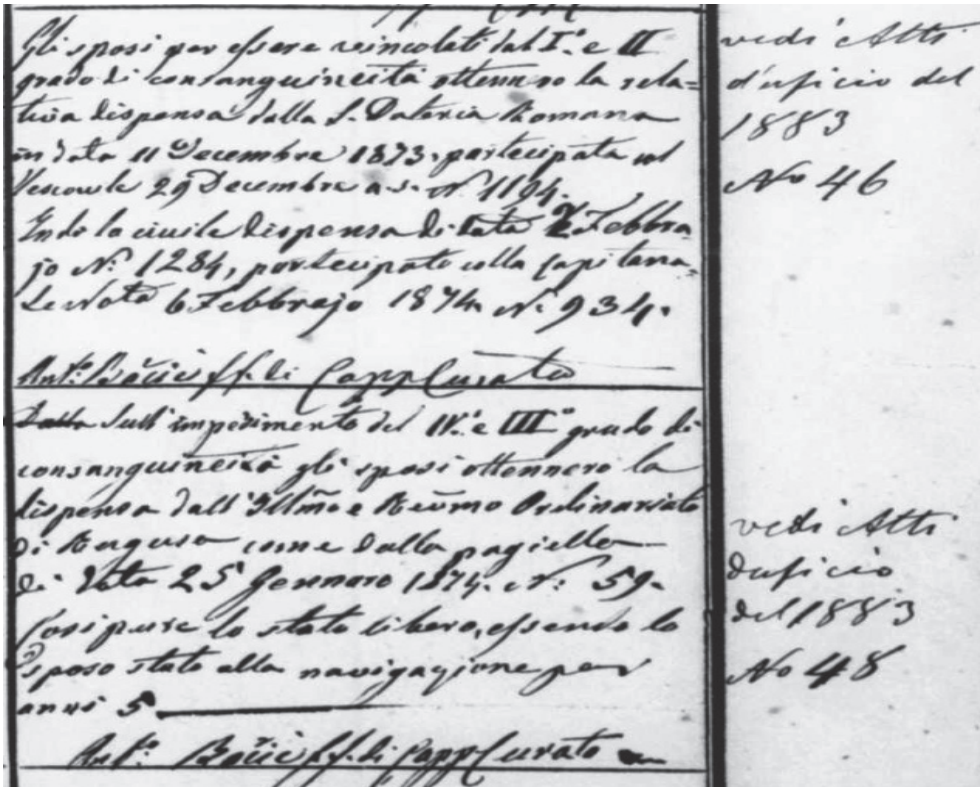 Gli sposi per essere vincolati dal I.º e II
grado di consanguineità ottennero la rela=
tiva dispensa dalla S. Dateria Romana
in data 11 Decembre 1873. partecipata col
Vescovile 29 Decembre a. s. Nº 1194.
Indi la civile dispensa di data 2 Febbra
jo Nº 1284, partecipata colla Capitana
le Nota 6 Febbrajo 1874. Nº 934.
Antº Bočić ff. di Capp Curato
Dall'impedimento del IV.º e III.º grado di
consanguineità gli sposi ottennero la
dispensa dall'Illmo e Reumo Ordinariato
di Ragusa come dalla pagiella
di data 25 Gennaro 1874. Nº: 59.
Cosi pure lo stato libero, essendo lo
sposo stato alla navigazione per
anni 5
Antº Bočić ff. di Capp Curato
vedi Atti
d'uficio del
1883
No 46
vedi Atti
duficio
del 1883
No 48